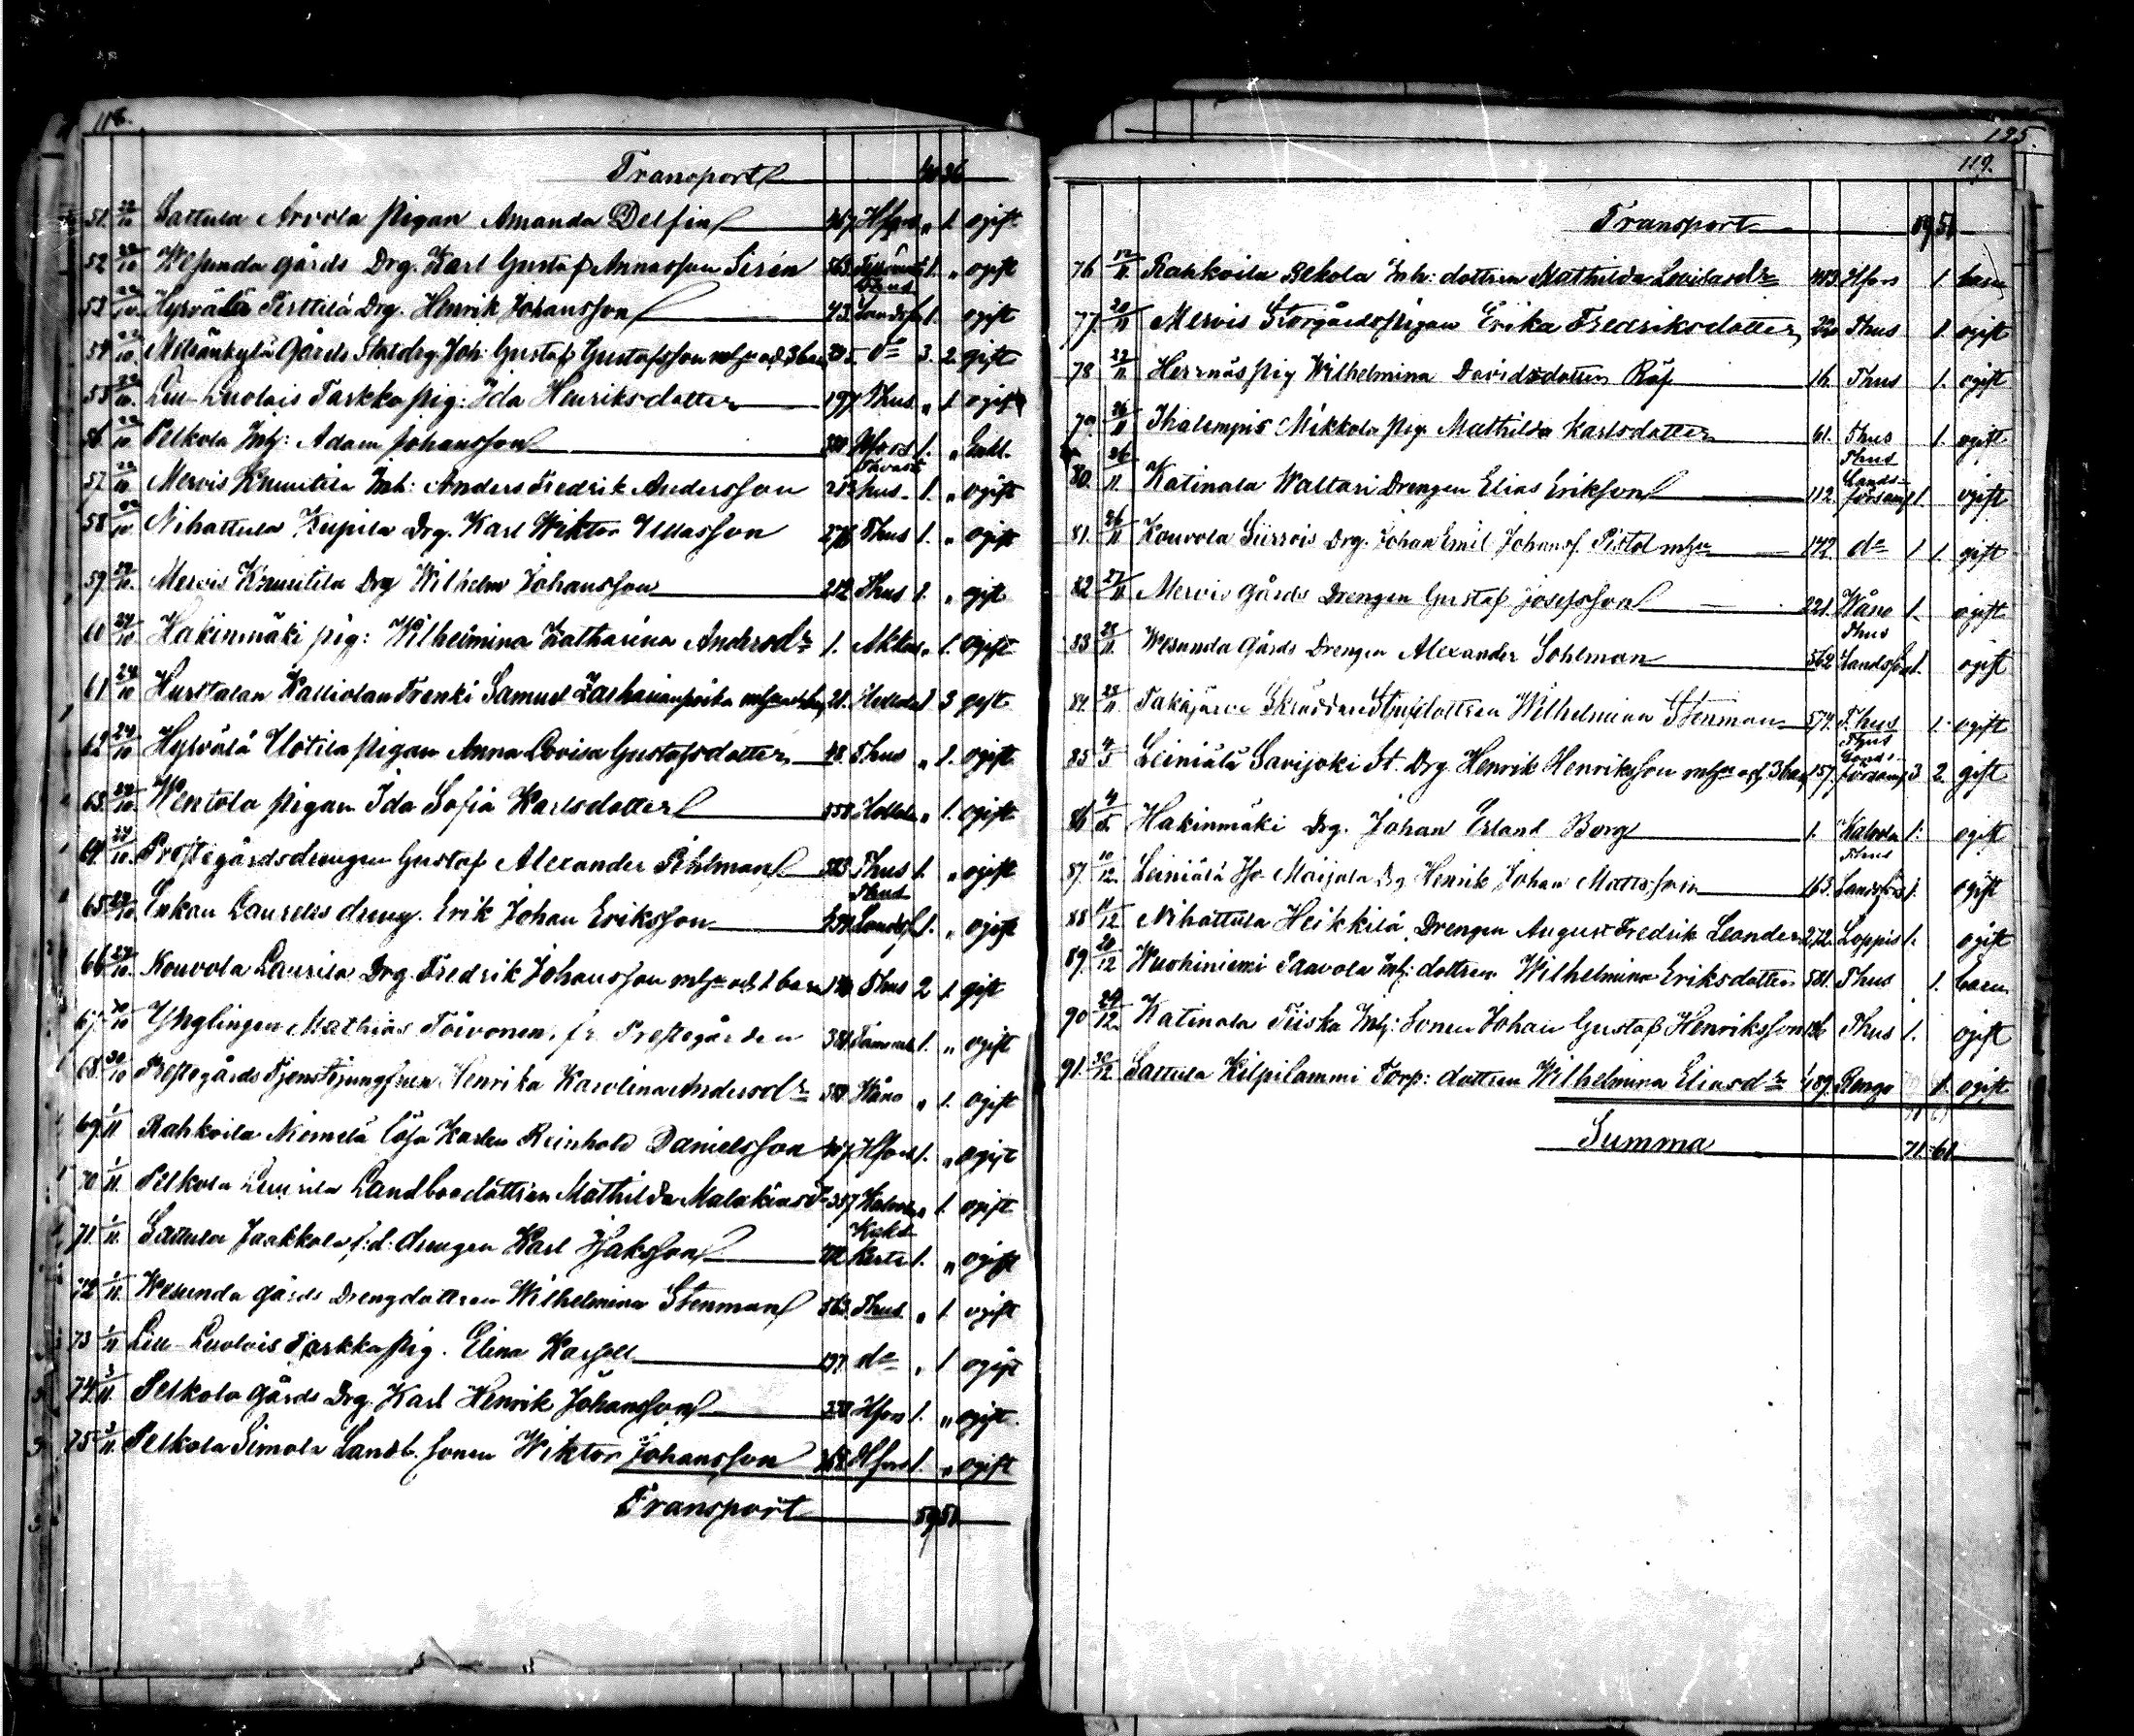 118.
Transport 40 36
51. 22/10 Sattula Arvola pigan Amanda Delfin 467. Hfors " 1. ogift
52 22/10 Wesunda gårds Drg. Karl Gustaf Annasson Sirén 563. 1. " ogift
53 22/10 Hyrvälä Perttilä Drg. Henrik Johansson 43. Thus Landsf. 1. ogift
54 22/10 gårds Statdrg. Joh: Gustaf Gustafsson mhu och 3 barn do 3. 2 gift
55 22/10. Lu-Luolais Tarkka pig: Ida Henriksdotter 197 Thus " 1 ogift
56 22/10 Pelkola Inh: Adam Johansson Hfors 1. " Enkl.
57. 22/10 Mervis Knuutila Inh: Anders Fredrik Andersson Thus. 1. " ogift
58 22/10 Nihattula Kupila Drg. Karl Wiktor Ullasson 276 Thus 1. " ogift
59 24/10. Mervis Knuutila Drg Wilhelm Johansson 212 Thus 1. " gift
60 24/10 Hakinmäki pig: Wilhelmina Katharina Andersdr 1. Akkas " 1. ogift
61 24/10 Hurttalan Kalliolan Trenki Samuel 21. Hollola 1 3 gift
62 24/10 Hyrvälä Uotila pigan Anna Lovisa Gustafsdotter 48. Thus " 1. ogift
63. 24/10. pigan Ida Sofia Karlsdotter 558 Hollola " 1. ogift
64. 24/10. Prestegårdsdrengen Gustaf Alexander Pihlman 383 Thus 1. " ogift
65 24/10 Laurelis dreng. Erik Johan Eriksson Thus Landsf. 1. " ogift
66 24/10. Kouvola Laurila Drg. Fredrik Johansson mhu och 1 barn 170 Thus 2 1. gift
67. 30/10 Ynglingen Mathias Toivonen, fr Prestegården 384 Tammela 1. " ogift
68. 30/10 Prestegårds Tjenstejungfrun Henrika Karolina Andersdr 384 Wåno " 1. ogift
69 1/11 Rahkoila Niemelä löja Karlen Reinhold Danielsson 407 Hfors 1. " ogift
70 1/11. Pelkola Laurila Landbondottren Mathilda Malakiasdr 357 Kalvola " 1. ogift
71. 1/11. Sattula Jaakkola f:d: drengen Karl Isaksson 1. " ogift
72 1/11. Wesunda gårds Drengdottren Wilhelmina Stenman 563. Thus " 1 ogift
73 1/11 Lu-Luolais Tarkka pig. Elina 197. do " 1 ogift
74 3/11. Pelkola gårds Drg. Karl Henrik Johansson 338 Hfors 1. " ogift
75 3/11. Pelkola Simola Landb. sonen Wiktor Johansson 368. Hfors 1. " ogift
Transport 59 51
125.
119.
Transport 59 51
76 12/11. Rahkoila Rekola Inh: dottren Mathilda 403. Hfors 1 barn
77. 20/11 Mervis Storgårds pigan Erika Fredriksdotter 220 Thus 1. ogift
78 22/11 Herrnäs pig Wilhelmina Davidsdotter Räf 16. Thus 1. ogift
79. 26/11 Ihalempis Mikkola pig. Mathilda Karlsdotter 61. Thus 1. ogift
80. 26/11. Katinala Waltari Drengen Elias Eriksson 112. Thus Landsförsaml. 1. ogift
81. 26/11 Kouvola Siirrois Drg. Johan Emil Johanss. Pistol mhu 172. do 1 1. gift
82 27/11 Mervis gårds Drengen Gustaf Josefsson 221. Wåno 1. ogift
83 28/11. Wesunda gårds Drengen Alexander Sohlman 562 Thus Landsför. 1. ogift
84. 28/11. Takajärvi Wilhelmina Stenman 574. Thus 1. ogift
85 Leiniälä Savijoki St. Drg Henrik Henriksson mhu och 3 barn 157. Thus Landsförsaml. 3 2. gift
86 Hakinmäki Drg. Johan Erland Borg 1. Kalvola 1. ogift
87. 10/12. Leiniälä Iso Maijala Drg Henrik Johan Mattsson 163. Thus Landsför. 1. ogift
88 11/12 Nihattula Heikkilä Drengen August Fredrik Leander 272. Loppis 1. ogift
89. 20/12 Wuohiniemi Paavola Inh: dottren Wilhelmina Eriksdotter 581. Thus 1. barn
90 24/12. Katinala Tiiska Inh: Sonen Johan Gustaf Henriksson Thus 1. ogift
91. 30/12 Sattula Kilpilammi Torp: dottren Wilhelmina Eliasdr 489. Rengo 1. ogift
Summa 71 61